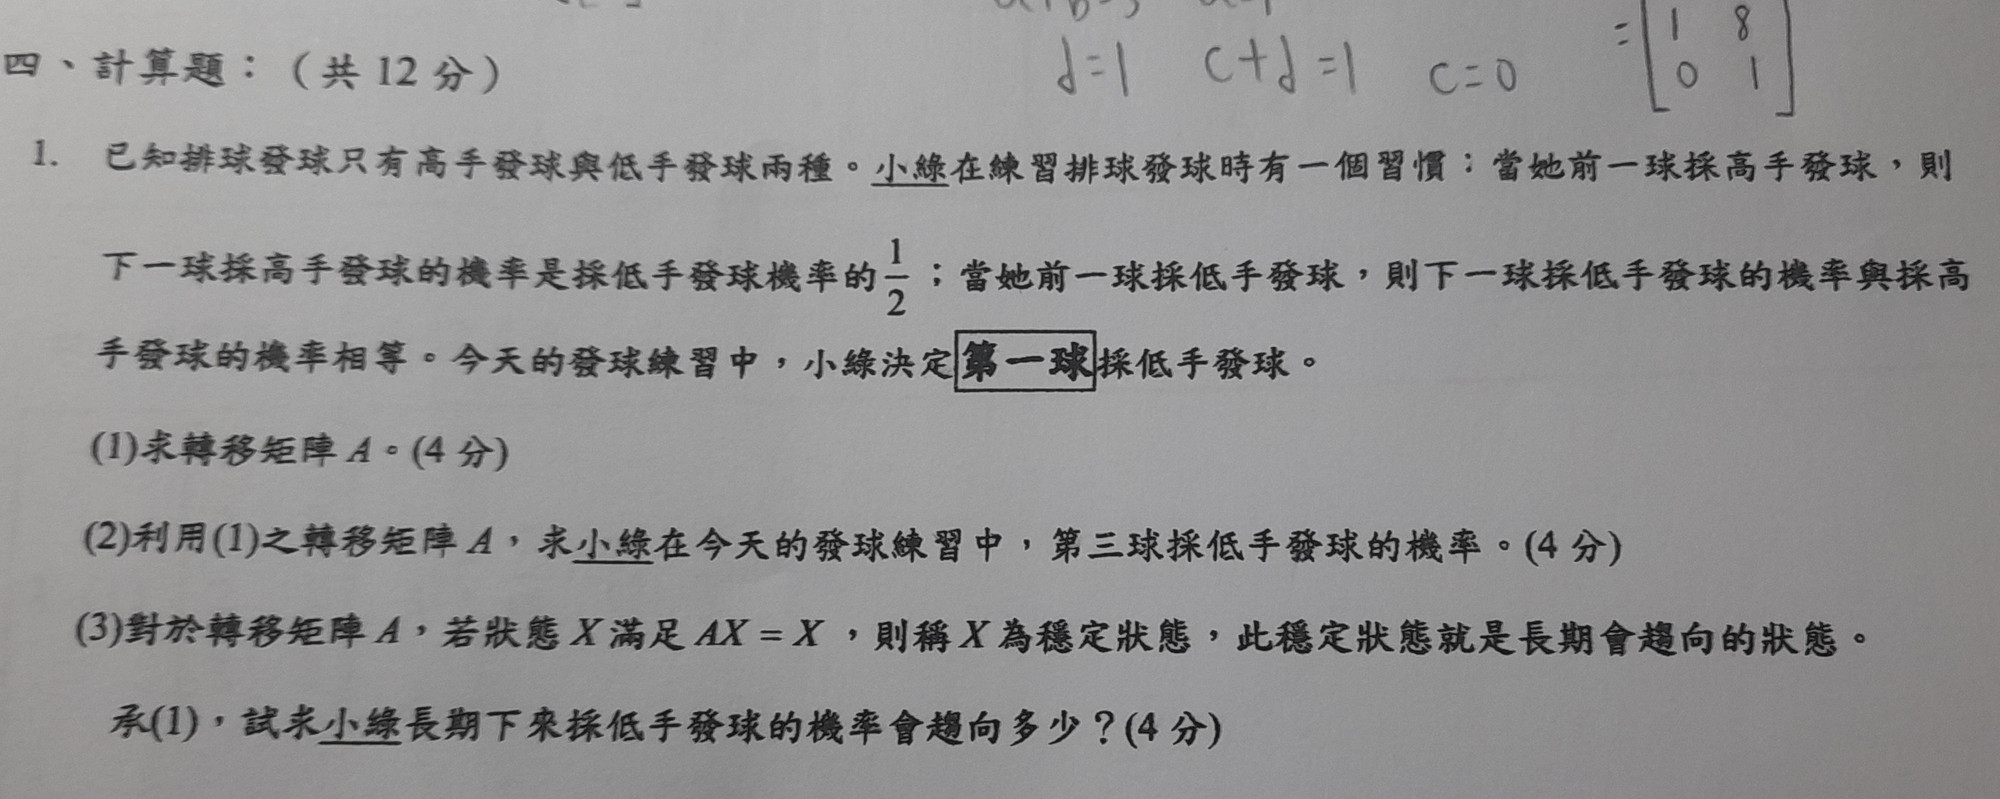 d=1 c+d=1 c=0
=[1 8
0 1]
四、計算題：（共 12 分）
1. 已知排球發球只有高手發球與低手發球兩種。小綠在練習排球發球時有一個習慣：當她前一球採高手發球，則
下一球採高手發球的機率是採低手發球機率的1/2；當她前一球採低手發球，則下一球採低手發球的機率與採高
手發球的機率相等。今天的發球練習中，小綠決定第一球採低手發球。
(1)求轉移矩陣 A。(4 分)
(2)利用(1)之轉移矩陣 A，求小綠在今天的發球練習中，第三球採低手發球的機率。(4 分)
(3)對於轉移矩陣 A，若狀態 X 滿足 AX = X ，則稱 X 為穩定狀態，此穩定狀態就是長期會趨向的狀態。
承(1)，試求小綠長期下來採低手發球的機率會趨向多少？(4 分)